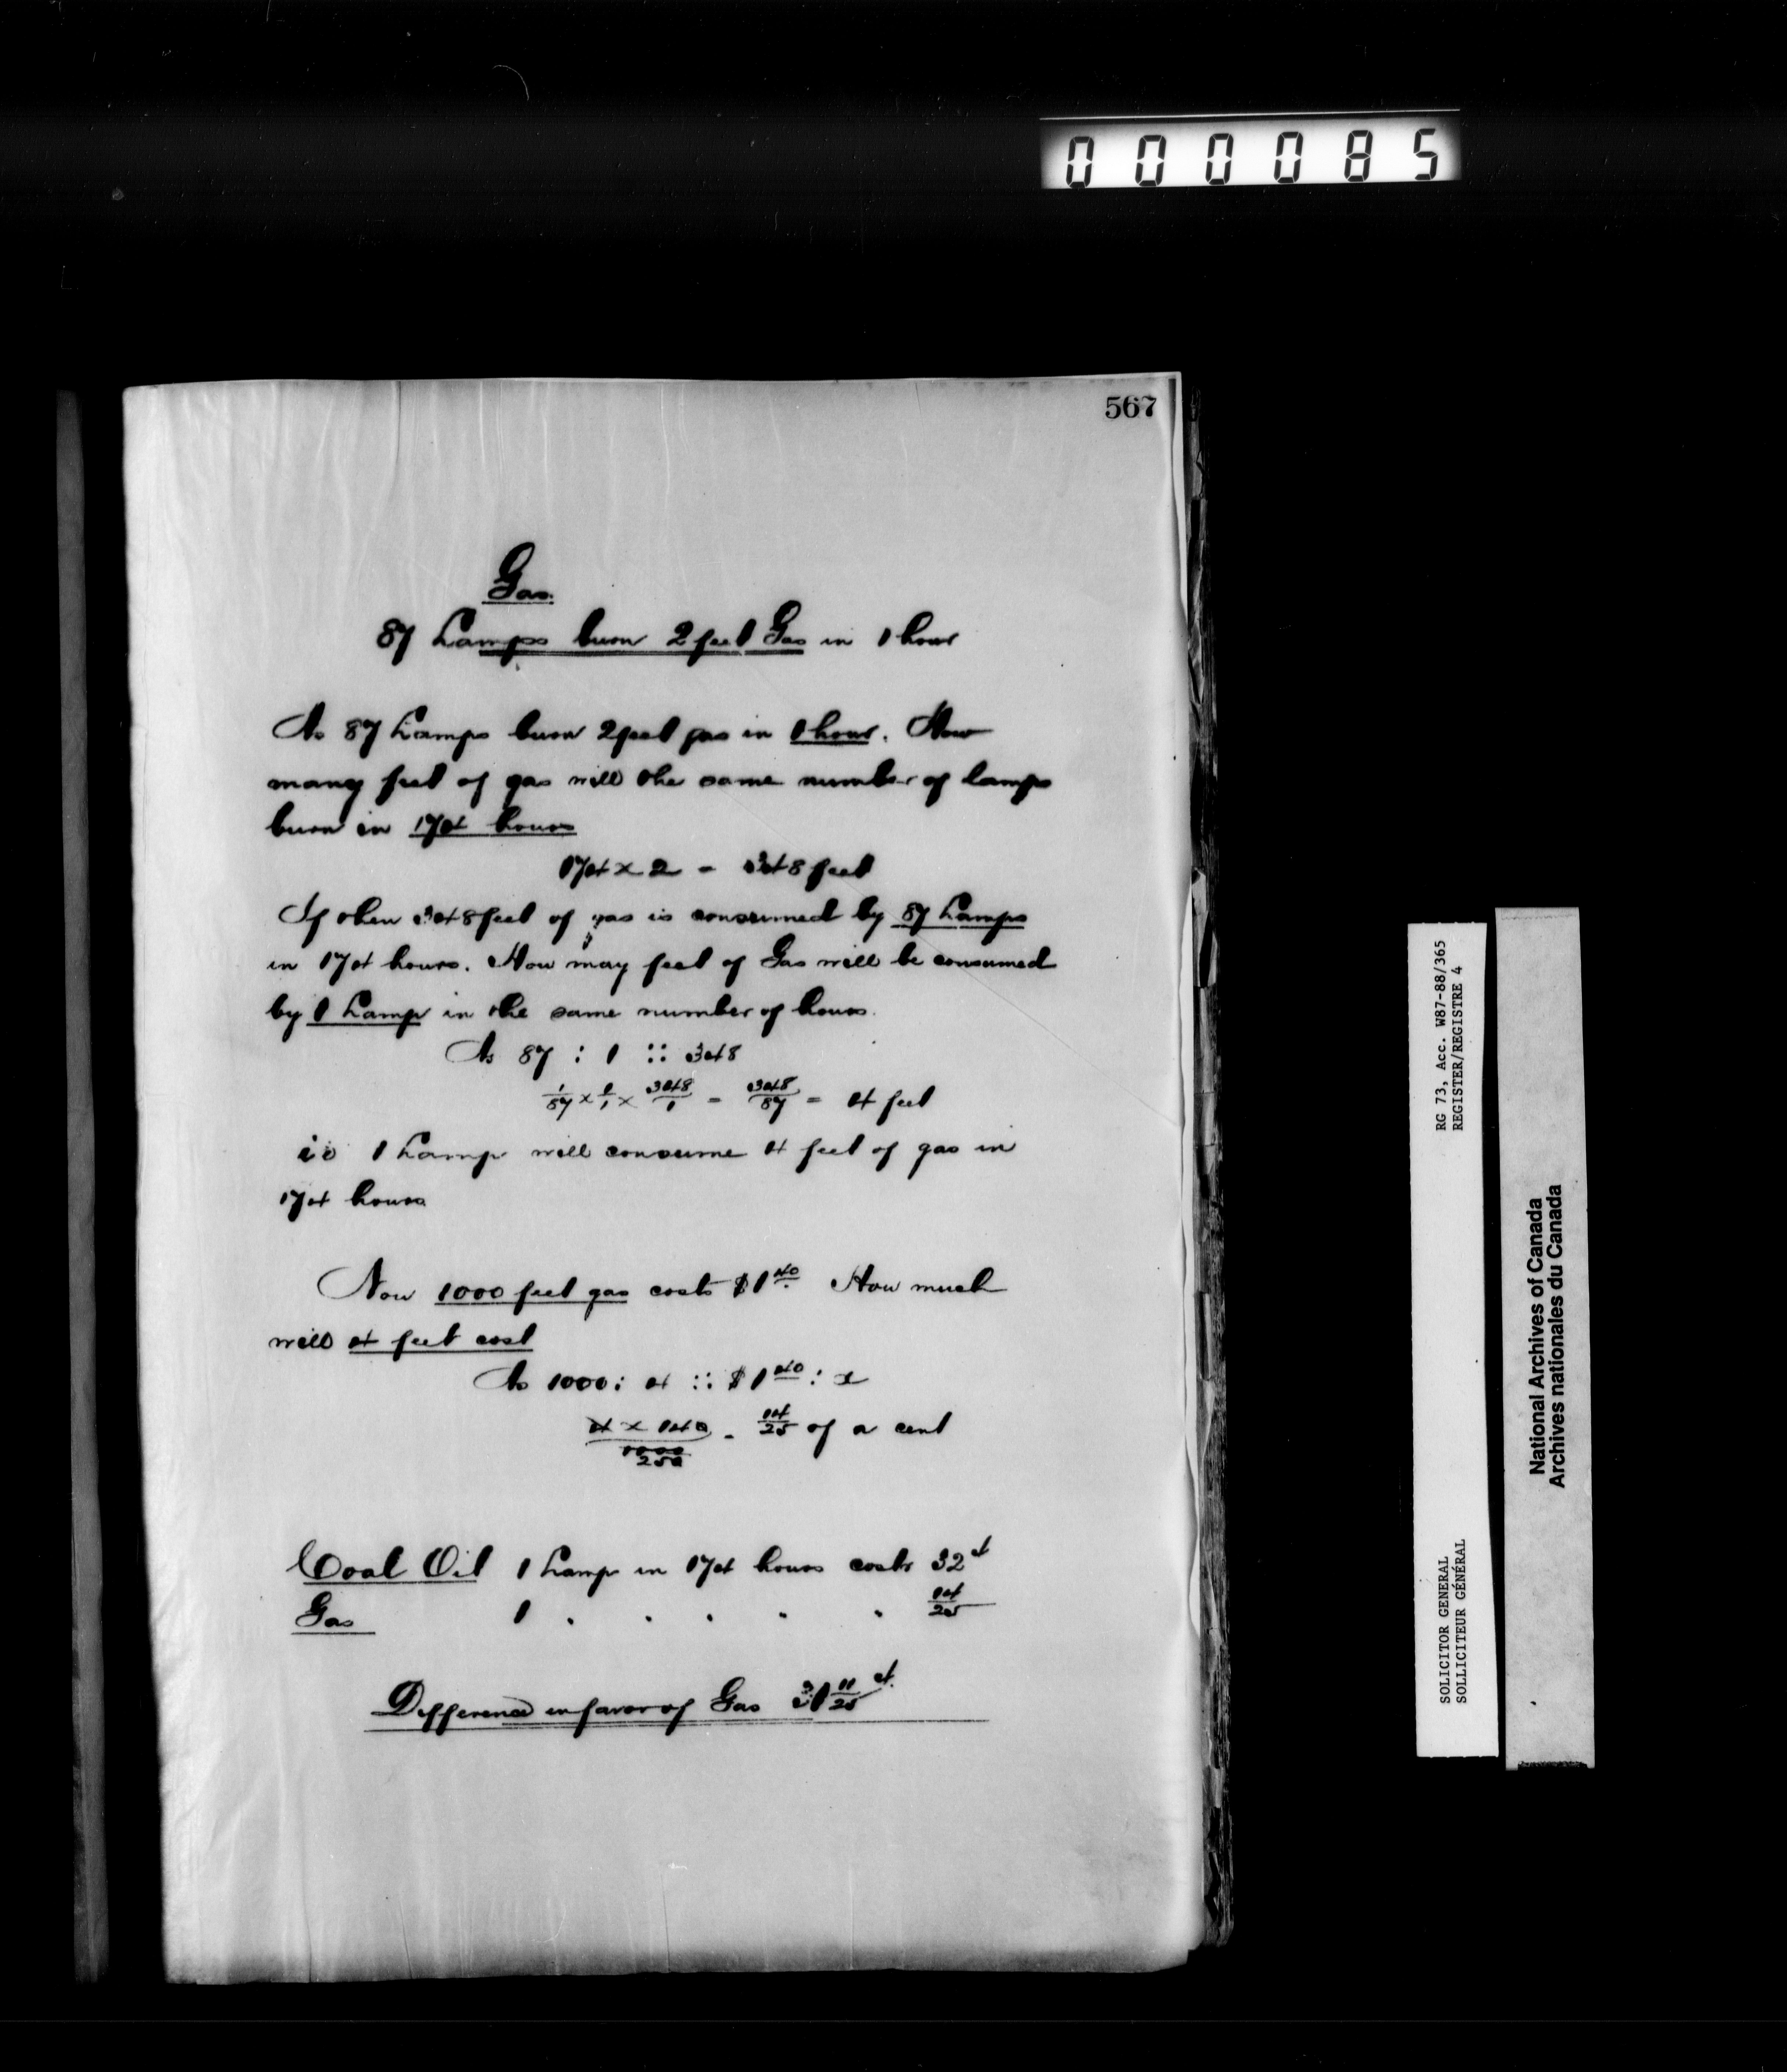 000085
567
Gas.
87 Lamps burn 2 feet Gas in 1 hour
As 87 Lamps burn 2 feet gas in 1 hour. How
many feet of gas will the same number of lamps
burn in 174 hours
174 x 2 = 348 feet
If then 348 feet of gas is consumed by 87 Lamps
in 174 hours. How may feet of Gas will be consumed
by 1 Lamp in the same number of hours.
As 87 : 1 :: 348
1/87 x 1/1 x 348/1 = 348/87 = 4 feet
ie 1 Lamp will consume 4 feet of gas in
174 hours
Now 1000 feet gas costs $1.40 How much
will 4 feet cost
As 1000 : 4 :: $1.40 : x
4 x 140 / 1000 = 14/25 of a cent
250
Coal Oil 1 Lamp in 174 hours costs 32 ct
Gas 1 " " " " " 14/25
Difference in favor of Gas 31 11/25 ct.
RG 73, Acc. W87-88/365
REGISTER/REGISTRE 4
SOLICITOR GENERAL
SOLLICITEUR GÉNÉRAL
National Archives of Canada
Archives nationales du Canada